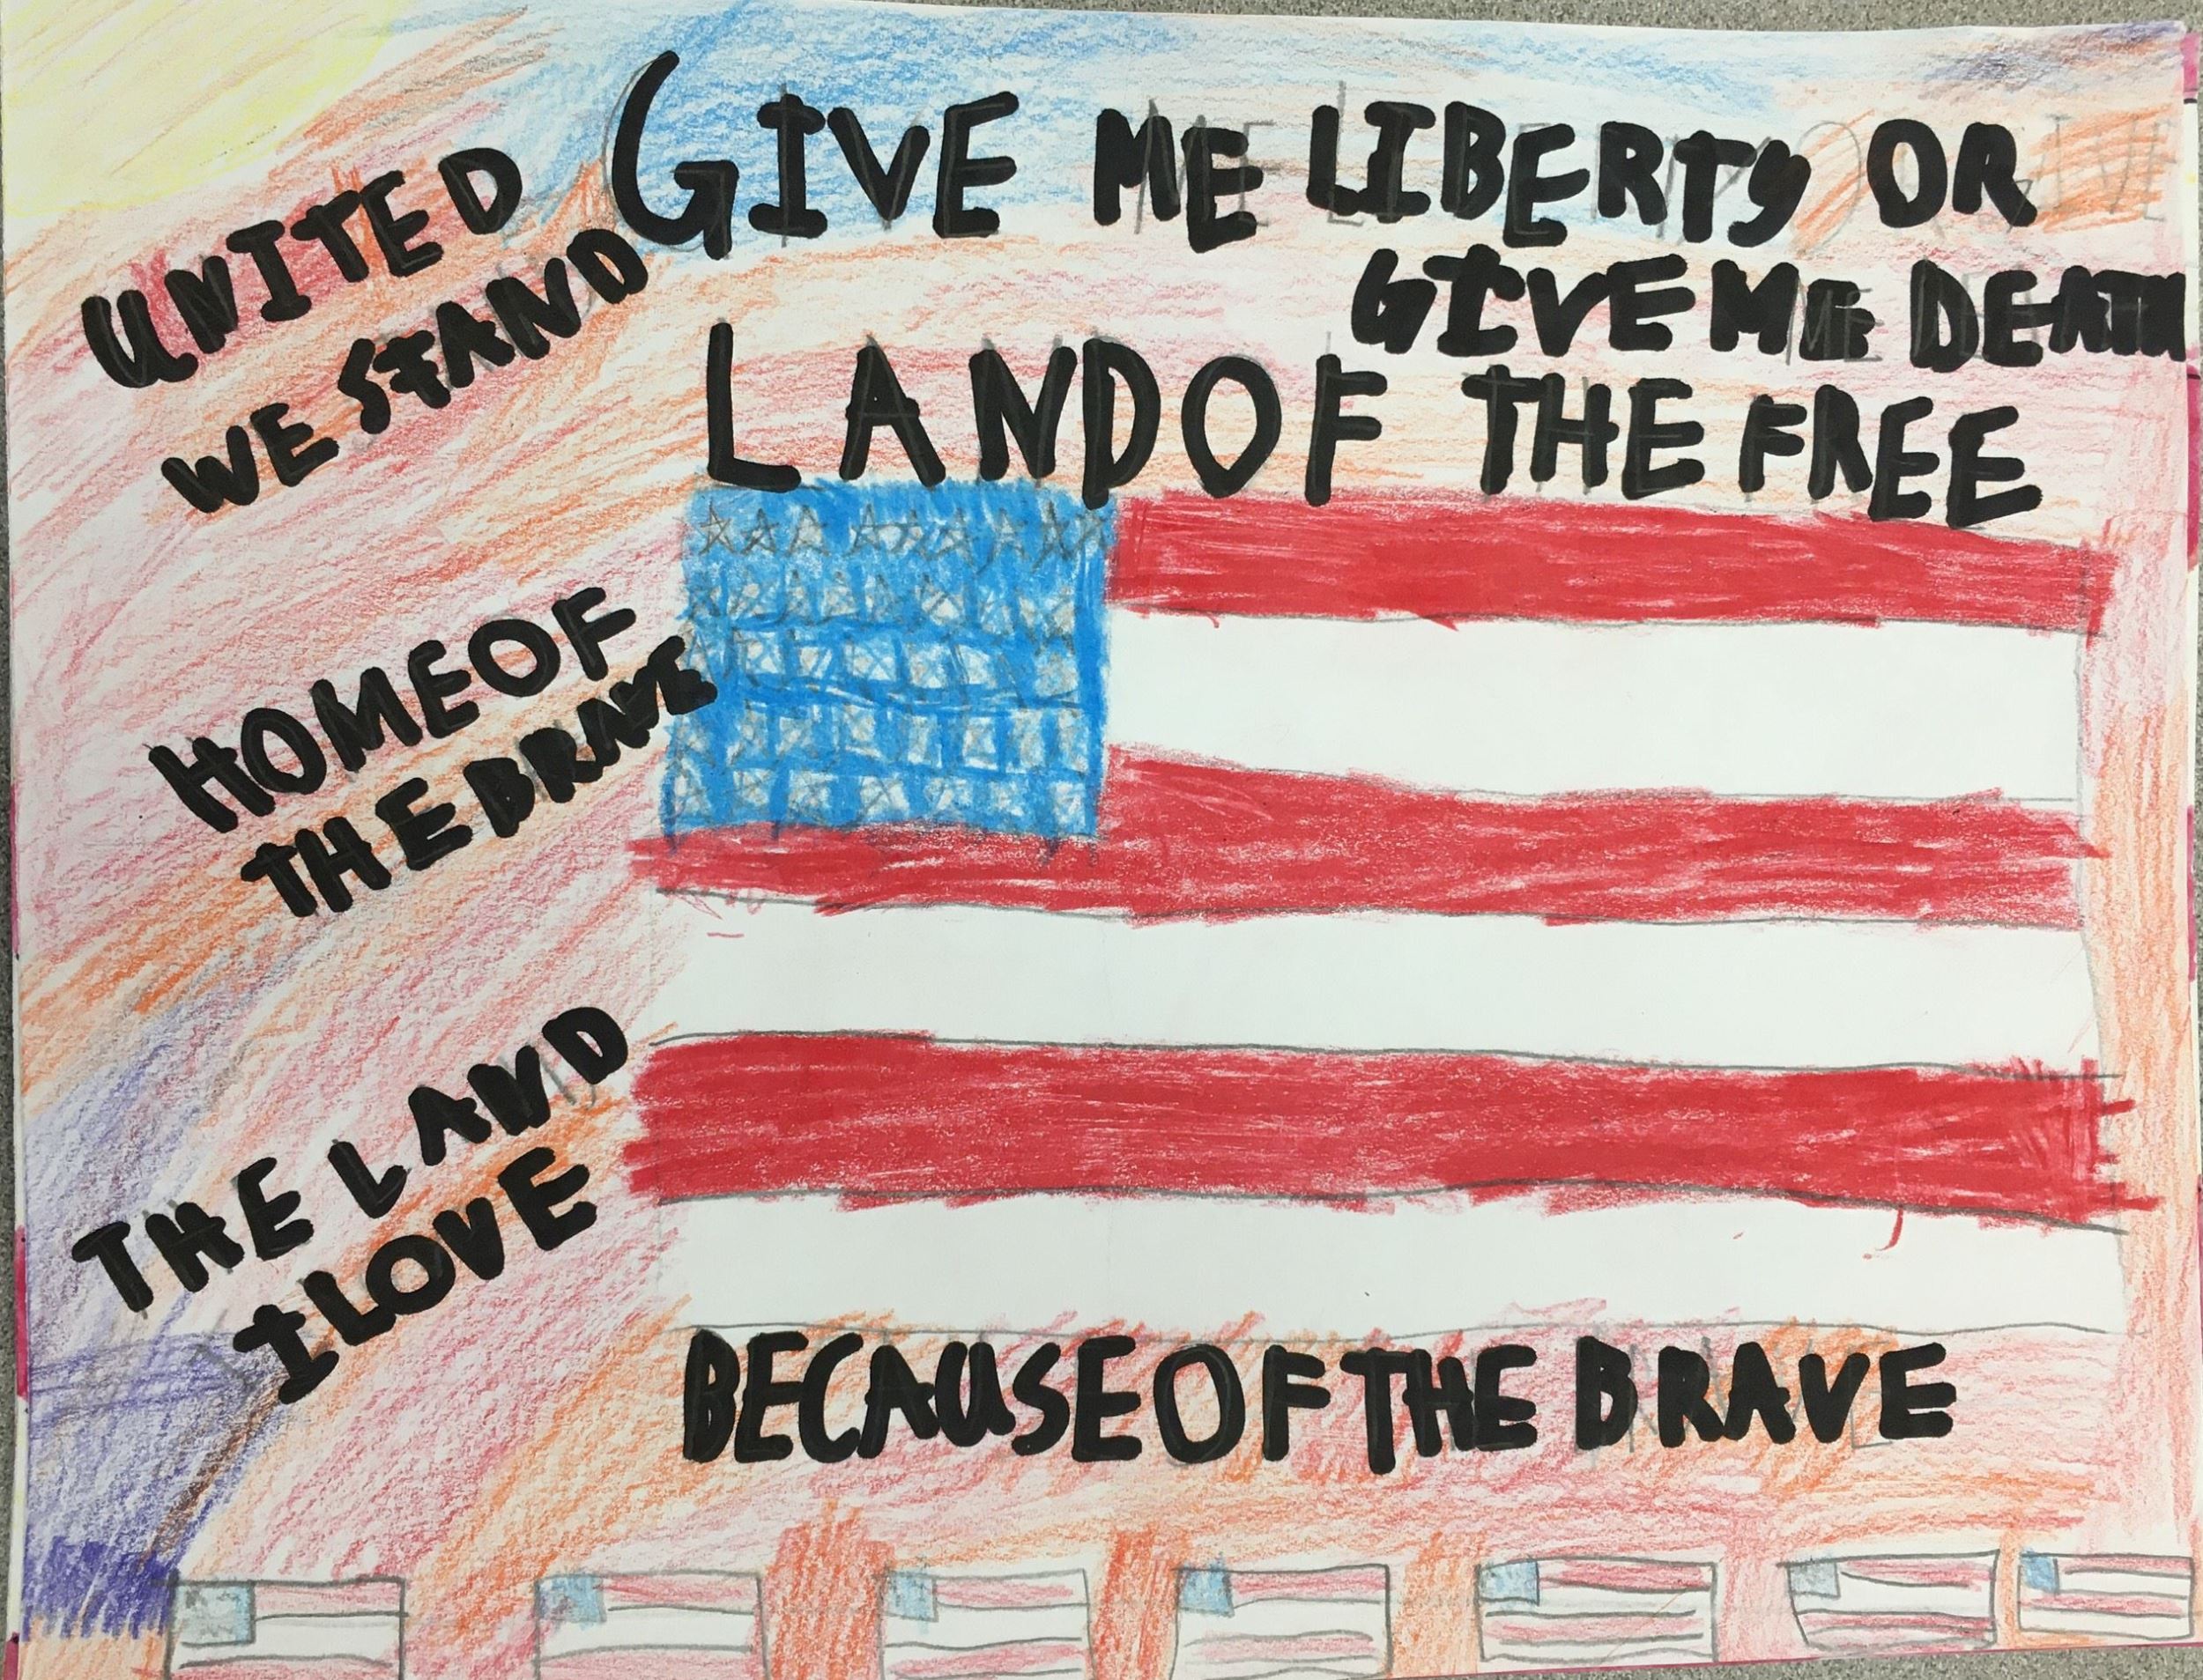 UNITED
WE STAND
GIVE ME LIBERTY OR
GIVE ME DEATH
LAND OF THE FREE
HOME OF
THE BRAVE
THE LAND
I LOVE
BECAUSE OF THE BRAVE